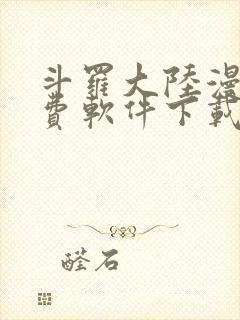 斗羅大陸漫
費軟件下載
醛石